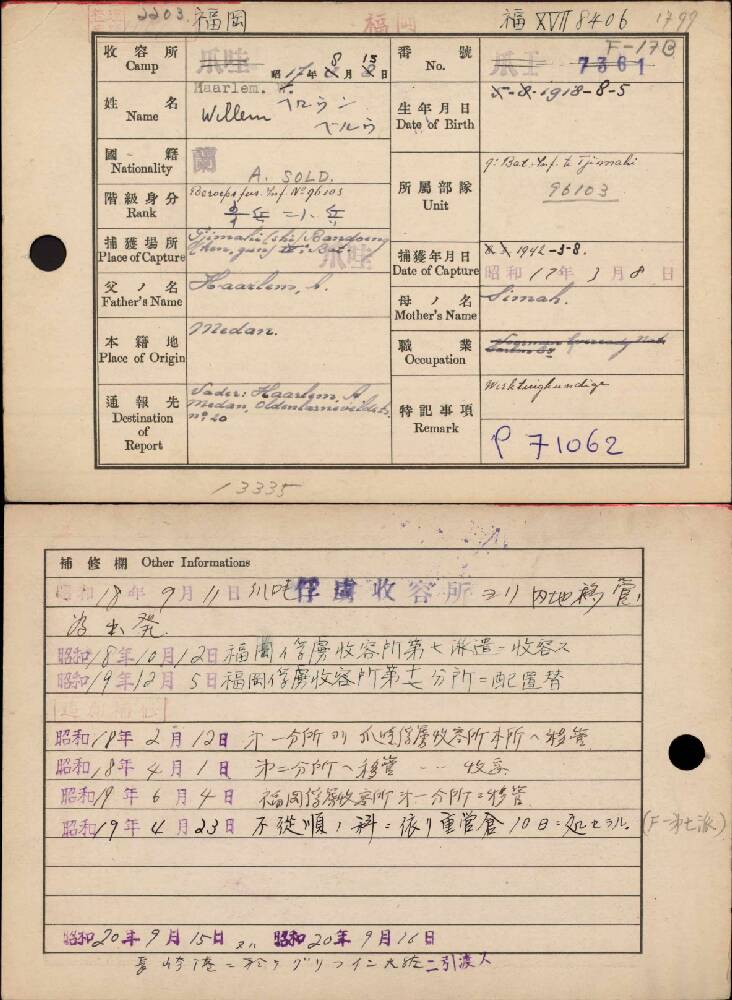 2203. 福岡 福岡 福 XVII 8406 1799
収容所 Camp 爪哇 昭17年8月13日
番號 No. 爪 7361 F-17B
姓名 Name Haarlem. W. Willem
生年月日 Date of Birth 5-8-1918-8-5
國籍 Nationality 蘭
A. SOLD.
階級身分 Rank Beroeps fus. Inf. No 96103
所属部隊 Unit 9e Bat. Inf. te Tjimahi
96103
捕獲場所 Place of Capture Tjimahi (shi) Bandoeng
爪哇
捕獲年月日 Date of Capture 1942-3-8.
昭和17年3月8日
父ノ名 Father's Name Haarlem, A.
母ノ名 Mother's Name Simah.
本籍地 Place of Origin Medan.
職業 Occupation
通報先 Destination of Report Vader: Haarlem, A.
Medan, Oldenbarneveldtstr.
no 20
特記事項 Remark Werktuigkundige
P 71062
13335
補修欄 Other Informations
昭和18年9月11日 爪哇俘虜收容所ヨリ内地移管ノ
為出発.
昭和18年10月12日 福岡俘虜收容所第七派遣=收容ス
昭和19年12月5日 福岡俘虜收容所第十七分所=配置替
昭和18年2月12日 第一分所ヨリ爪哇俘虜收容所本所ヘ移管
昭和18年4月1日 第二分所ヘ移管
昭和19年6月4日 福岡俘虜收容所第一分所=移管
昭和19年4月23日 不従順ノ科=依リ重営倉10日=処セラル. (F-第七派)
昭和20年9月15日 又ハ 昭和20年9月16日
長崎港ニ於テ
ニ引渡ス